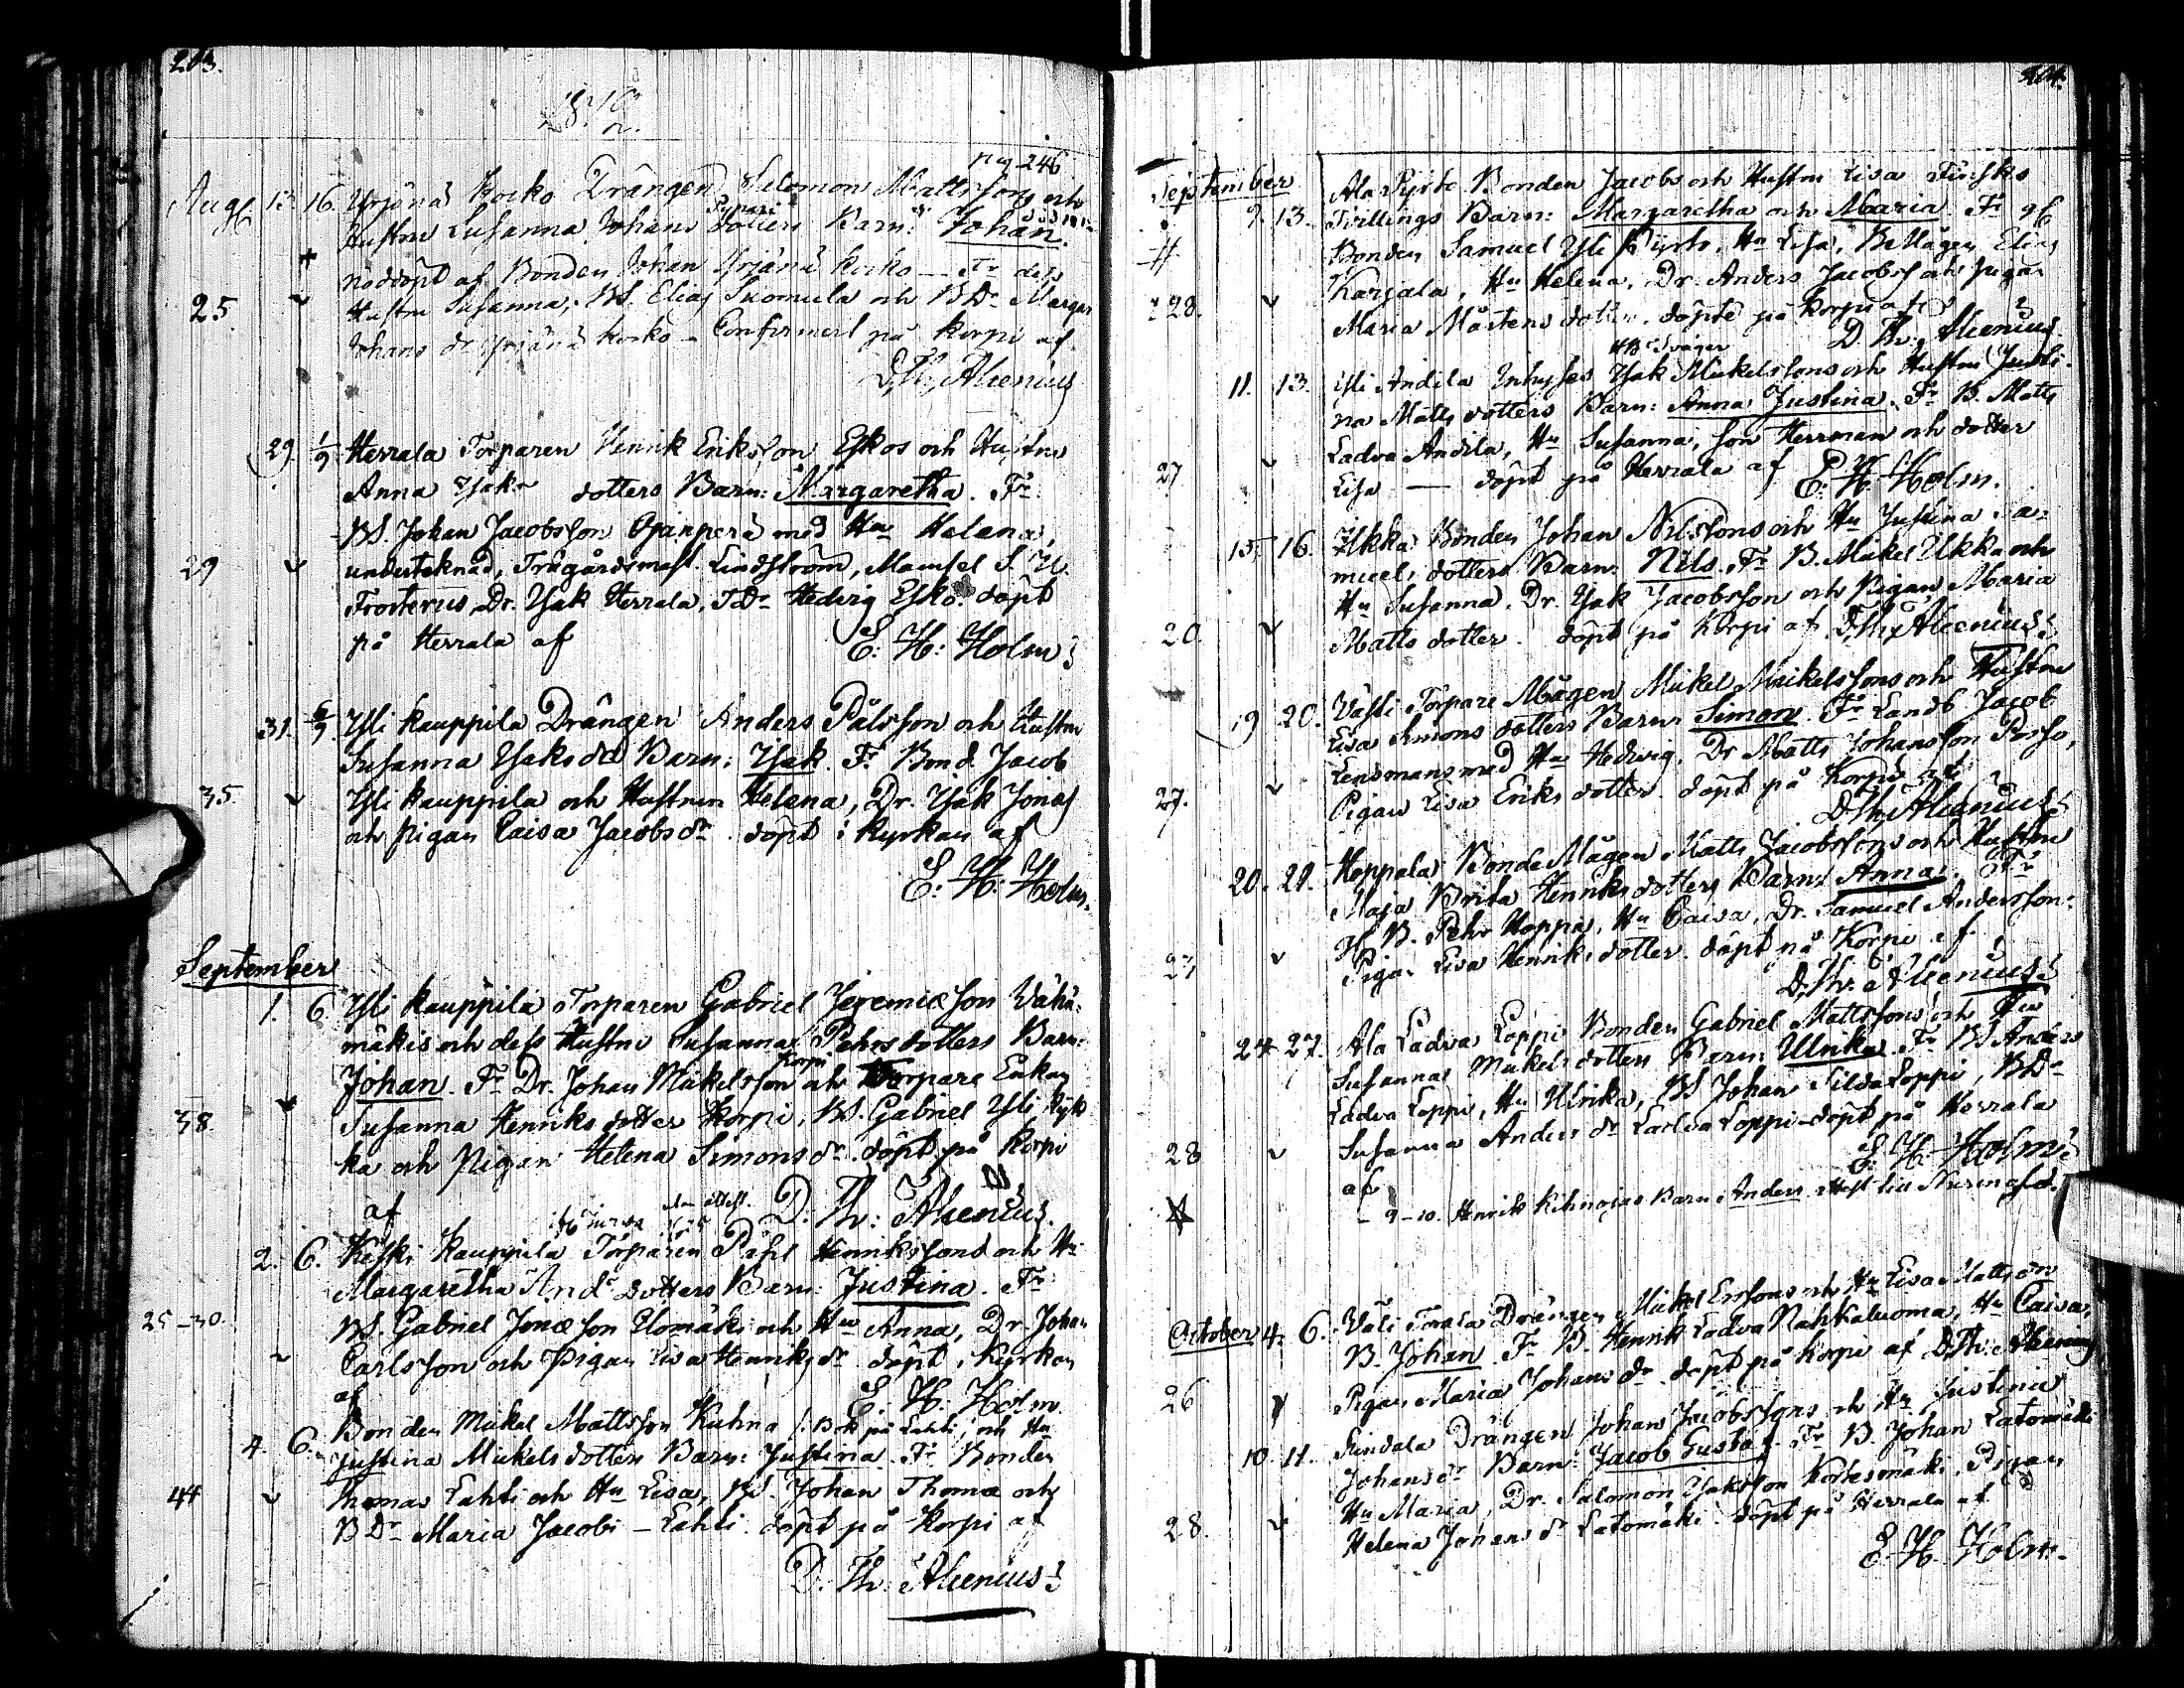 203.
1840
pag 246
Aug. 13 16. Yrjänä Korko Drängen Salomon Mattsson och
Hustru Susanna Johans dotters Barn: Johan.
+ nöddöpt af Bonden Johan Yrjänä Korko — Fr. dess
25 Hustru Susanna, BS. Elias Skomula och BDr Margar
Johans dr Yrjänä Korko — Confirmerl på Korpi af
D. Th: Alcenius
29 1/9 Herrala Torparen Henrik Eriksson Eskos och Hustru
Anna Isaks dotters Barn: Margaretha. Fr.
BS. Johan Jacobsson Ojanperä med Hu Helena,
29 undertecknad, Trägårdsmast. Lindström, Mamsel S. U.
Frosterus, Dr. Isak Herrala, TDr Hedvig Esko. döpt
på Herrala af E. H: Holm
31. 6/9. Yli Kauppila Drängen Anders Pålsson och Hustru
Susanna Isaks dr Barn: Isak. Fr. Bond. Jacob
35 Yli kauppila och Hustrun Helena, Dr. Isak Jonas
och pigan Caisa Jacobs dr döpt i Kyrkan af
E. H: Holm.
September
1. 6 Yli kauppila Torparen Gabriel Jeremiæson Vähä-
mäkis och dess Hustru Susanna Pehrs dotters Barn:
Korpi
Johan. Fr Dr. Johan Mickelsson och Torpare Enkan
38. Susanna Henriks dotter Korpi, BS. Gabriel Yli Kyk
ka och pigan Helena Simons dr. döpt på Korpi
af D. Th: Alcenius.
2. 6. Keski Kauppila Torparen Påhl Henrikssons och Hu
Margaretha And. dotters Barn: Justina. Fr
25-30. BS. Gabriel Jonæson Elomäki och Hu Anna, Dr. Johan
Carlsson och Pigan Lisa Henriks dr döpt i Kyrkan
af E. H. Holm.
4. 6. Bonden Mickel Mattsson Kuhna /: Bok på Lahti; och Hu
Justina Mickels dotters Barn: Justina. Fr Bonden
44 Thomas Lahti och Hu Lisa, BS. Johan Thomæ och
BDr Maria Jacobi — Lahti. döpt på Korpi af
D. Th: Alcenius
204.
September Ala Pyrto Bonden Jacobs och Hustru Lisa
9. 13. Tvillings Barn: Margaretha och Maria. Fr
Bonden Samuel Yli Pyrto, Hu Lisa, B Mågen Elias
Kargala, Hu Helena, Dr. Anders Jacobs och pigan
28. Maria Mårtens dotter. döpte på Korpi af
D. Th: Alcenius.
11. 13. Yli Andila Inhyses Isak Mickelssons och Hustru Justi-
na Matts dotters Barn: Anna Justina. Fr B. Matts
Ladva Andila, Hu Susanna, son Herrman och dotter
27 Lisa — döpt på Herrala af E. H. Holm.
15. 16. Ukka Bonden Johan Nilssons och Hu Justina Sa-
muels dotters Barn: Nils. Fr B. Mickel Ukka och
Hu Susanna. Dr. Isak Jacobsson och Pigan Maria
20. Matts dotter. döpt på Korpi af D. Th: Alcenius
19 20. Välli Torpare Mågen Mickel Mickelssons och Hustru
Lisa Simons dotters Barn: Simon. Fr Landb Jacob
Lensmans med Hu Hedvig, Dr Matts Johansson
27. Pigan Lisa Eriks dotter. döpt på Korpi af
D. Th: Alcenius
20. 21. Hoppala Bonde Mågen Matts Jacobssons och Hustru
Maja Brita Henriks dotters Barn: Anna. Fr
B. Pehr Hoppa, Hu Caisa, Dr. Samuel Andersson.
27 Pigan Lisa Henriks dotter. döpt på Korpi af
D. Th: Alcenius
24 27. Ala Ladva Loppi Bonden Gabriel Mattssons och Hu
Susanna Mickels dotters Barn: Ulrika. Fr BS Anders
Ladva Loppi, Hu Ulrika, BS Johan Loppi, BDr
28 Susanna Anders dr Ladva Loppi döpt på Herrala
af E. H. Holm
— 9 - 10. Henrik Kihnojas Barn: Anders
October 4. 6. Väli Torala Drängen Mickel Erssons och Hu Lisa Matts drs
B. Johan. Fr B. Henrik Ladva Nahkaluoma, Hu Caisa,
26 Pigan Maria Johans dr döpt på Korpi af D. Th: Alcenius
10. 11. Sundala Drängen Johan Jacobssons och Hu Justina
Johans dr Barn: Jacob Gustaf. Fr B. Johan Latomäki
Hu Maria, Dr. Salomon Isaksson Kortesmäki, Pigan
28. Helena Johans dr Latomäki döpt på Herrala af
E. H. Holm.